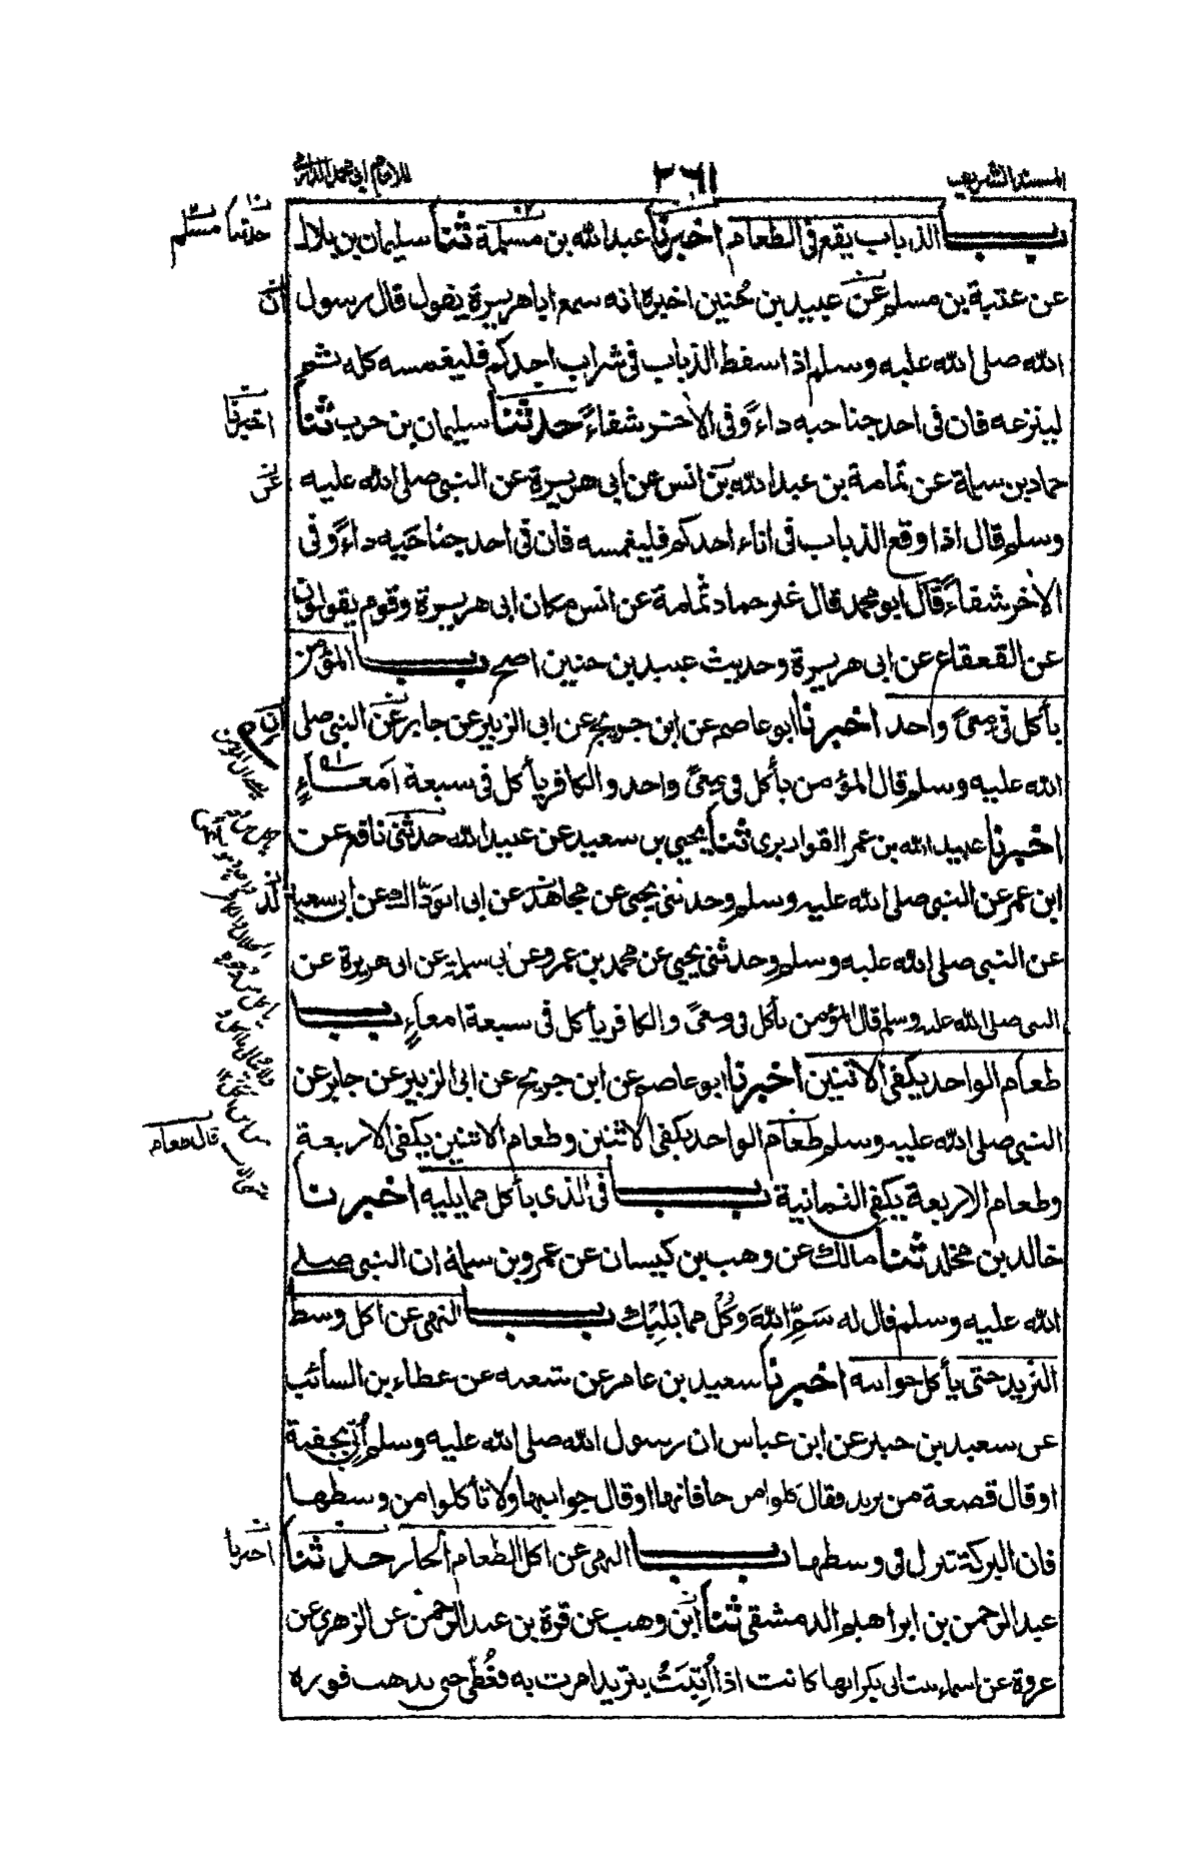 المسند الشريف
٢٦١
للامام ابي محمد الدارمي
باب الذباب يقع فى الطعام اخبرنا عبد الله بن مسلمة ثنا سليمان بن بلال
عن عتبة بن مسلم عن عبيد بن حنين اخبره انه سمع ابا هريرة يقول قال رسول
الله صلى الله عليه وسلم اذا سقط الذباب فى شراب احدكم فليغمسه كله ثم
لينزعه فان فى احد جناحيه داءً وفى الاخر شفاءً حدثنا سليمان بن حرب ثنا
حماد بن سلمة عن ثمامة بن عبد الله بن انس عن ابى هريرة عن النبى صلى الله عليه
وسلم قال اذا وقع الذباب فى اناء احدكم فليغمسه فان فى احد جناحيه داءً وفى
الاخر شفاءً قال ابو محمد قال غير حماد ثمامة عن انس مكان ابى هريرة وقوم يقولون
عن القعقاع عن ابى هريرة وحديث عبيد بن حنين اصح باب المؤمن
يأكل فى معىً واحد اخبرنا ابو عاصم عن ابن جريج عن ابى الزبير عن جابر عن النبى صلى
الله عليه وسلم قال المؤمن يأكل فى معىً واحد والكافر يأكل فى سبعة امعاءٍ
اخبرنا عبيد الله بن عمر القواريرى ثنا يحيى بن سعيد عن عبيد الله حدثنى نافع عن
ابن عمر عن النبى صلى الله عليه وسلم وحدثنى يحيى عن مجاهد عن ابى الودّاك عن ابى سعيد
عن النبى صلى الله عليه وسلم وحدثنى يحيى عن محمد بن عمرو عن ابى سلمة عن ابى هريرة عن
النبى صلى الله عليه وسلم قال المؤمن يأكل فى معىً والكافر يأكل فى سبعة امعاءٍ باب
طعام الواحد يكفى الاثنين اخبرنا ابو عاصم عن ابن جريج عن ابى الزبير عن جابر عن
النبى صلى الله عليه وسلم طعام الواحد يكفى الاثنين وطعام الاثنين يكفى الاربعة
وطعام الاربعة يكفى الثمانية باب فى الذى يأكل مما يليه اخبرنا
خالد بن مخلد ثنا مالك عن وهب بن كيسان عن عمرو بن سلمة ان النبى صلى
الله عليه وسلم قال له سَمِّ اللهَ وكُلْ مما يَلِيْكَ باب النهى عن اكل وسط
الثريد حتى يأكل جوانبه اخبرنا سعيد بن عامر عن شعبه عن عطاء بن السائب
عن سعيد بن جبير عن ابن عباس ان رسول الله صلى الله عليه وسلم اُتِىَ بجفنة
او قال قصعة من ثريد فقال كلوا من حافاتها او قال جوانبها ولا تأكلوا من وسطها
فان البركة تنزل فى وسطها باب النهى عن اكل الطعام الحار حدثنا
عبد الرحمن بن ابراهيم الدمشقى ثنا ابن وهب عن قرة بن عبد الرحمن عن الزهرى عن
عروة عن اسماء بنت ابى بكر انها كانت اذا اُتِيَتْ بثريد امرت به فغُطّى حتى يذهب فوره
حدثنا مسلم
ان
اخبرنا
عن
ان
قال طعام
اخبرنا